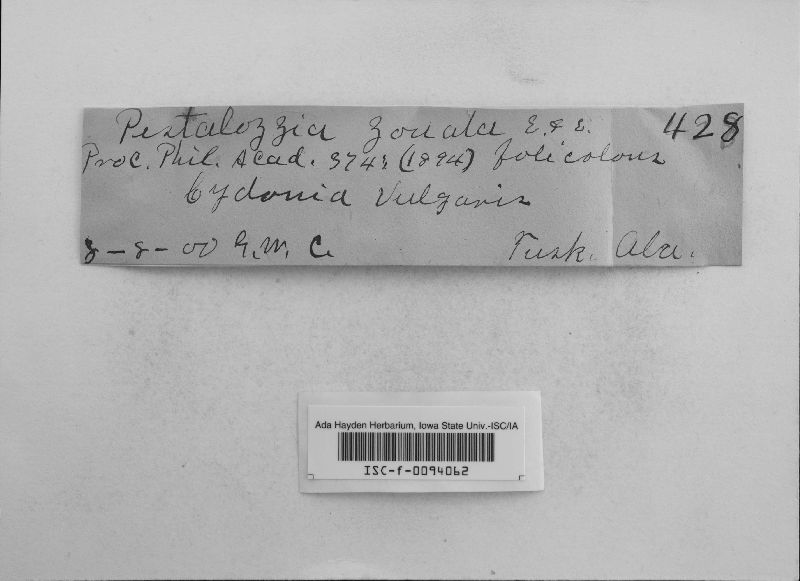 Pestalozzia zonata E. & E. 428
Proc. Phil. Acad. 374; (1894) folicolous
Cydonia Vulgaris
8-8-00 G.W.C. Tusk. Ala.
Ada Hayden Herbarium, Iowa State Univ.-ISC/IA
ISC-f-0094062